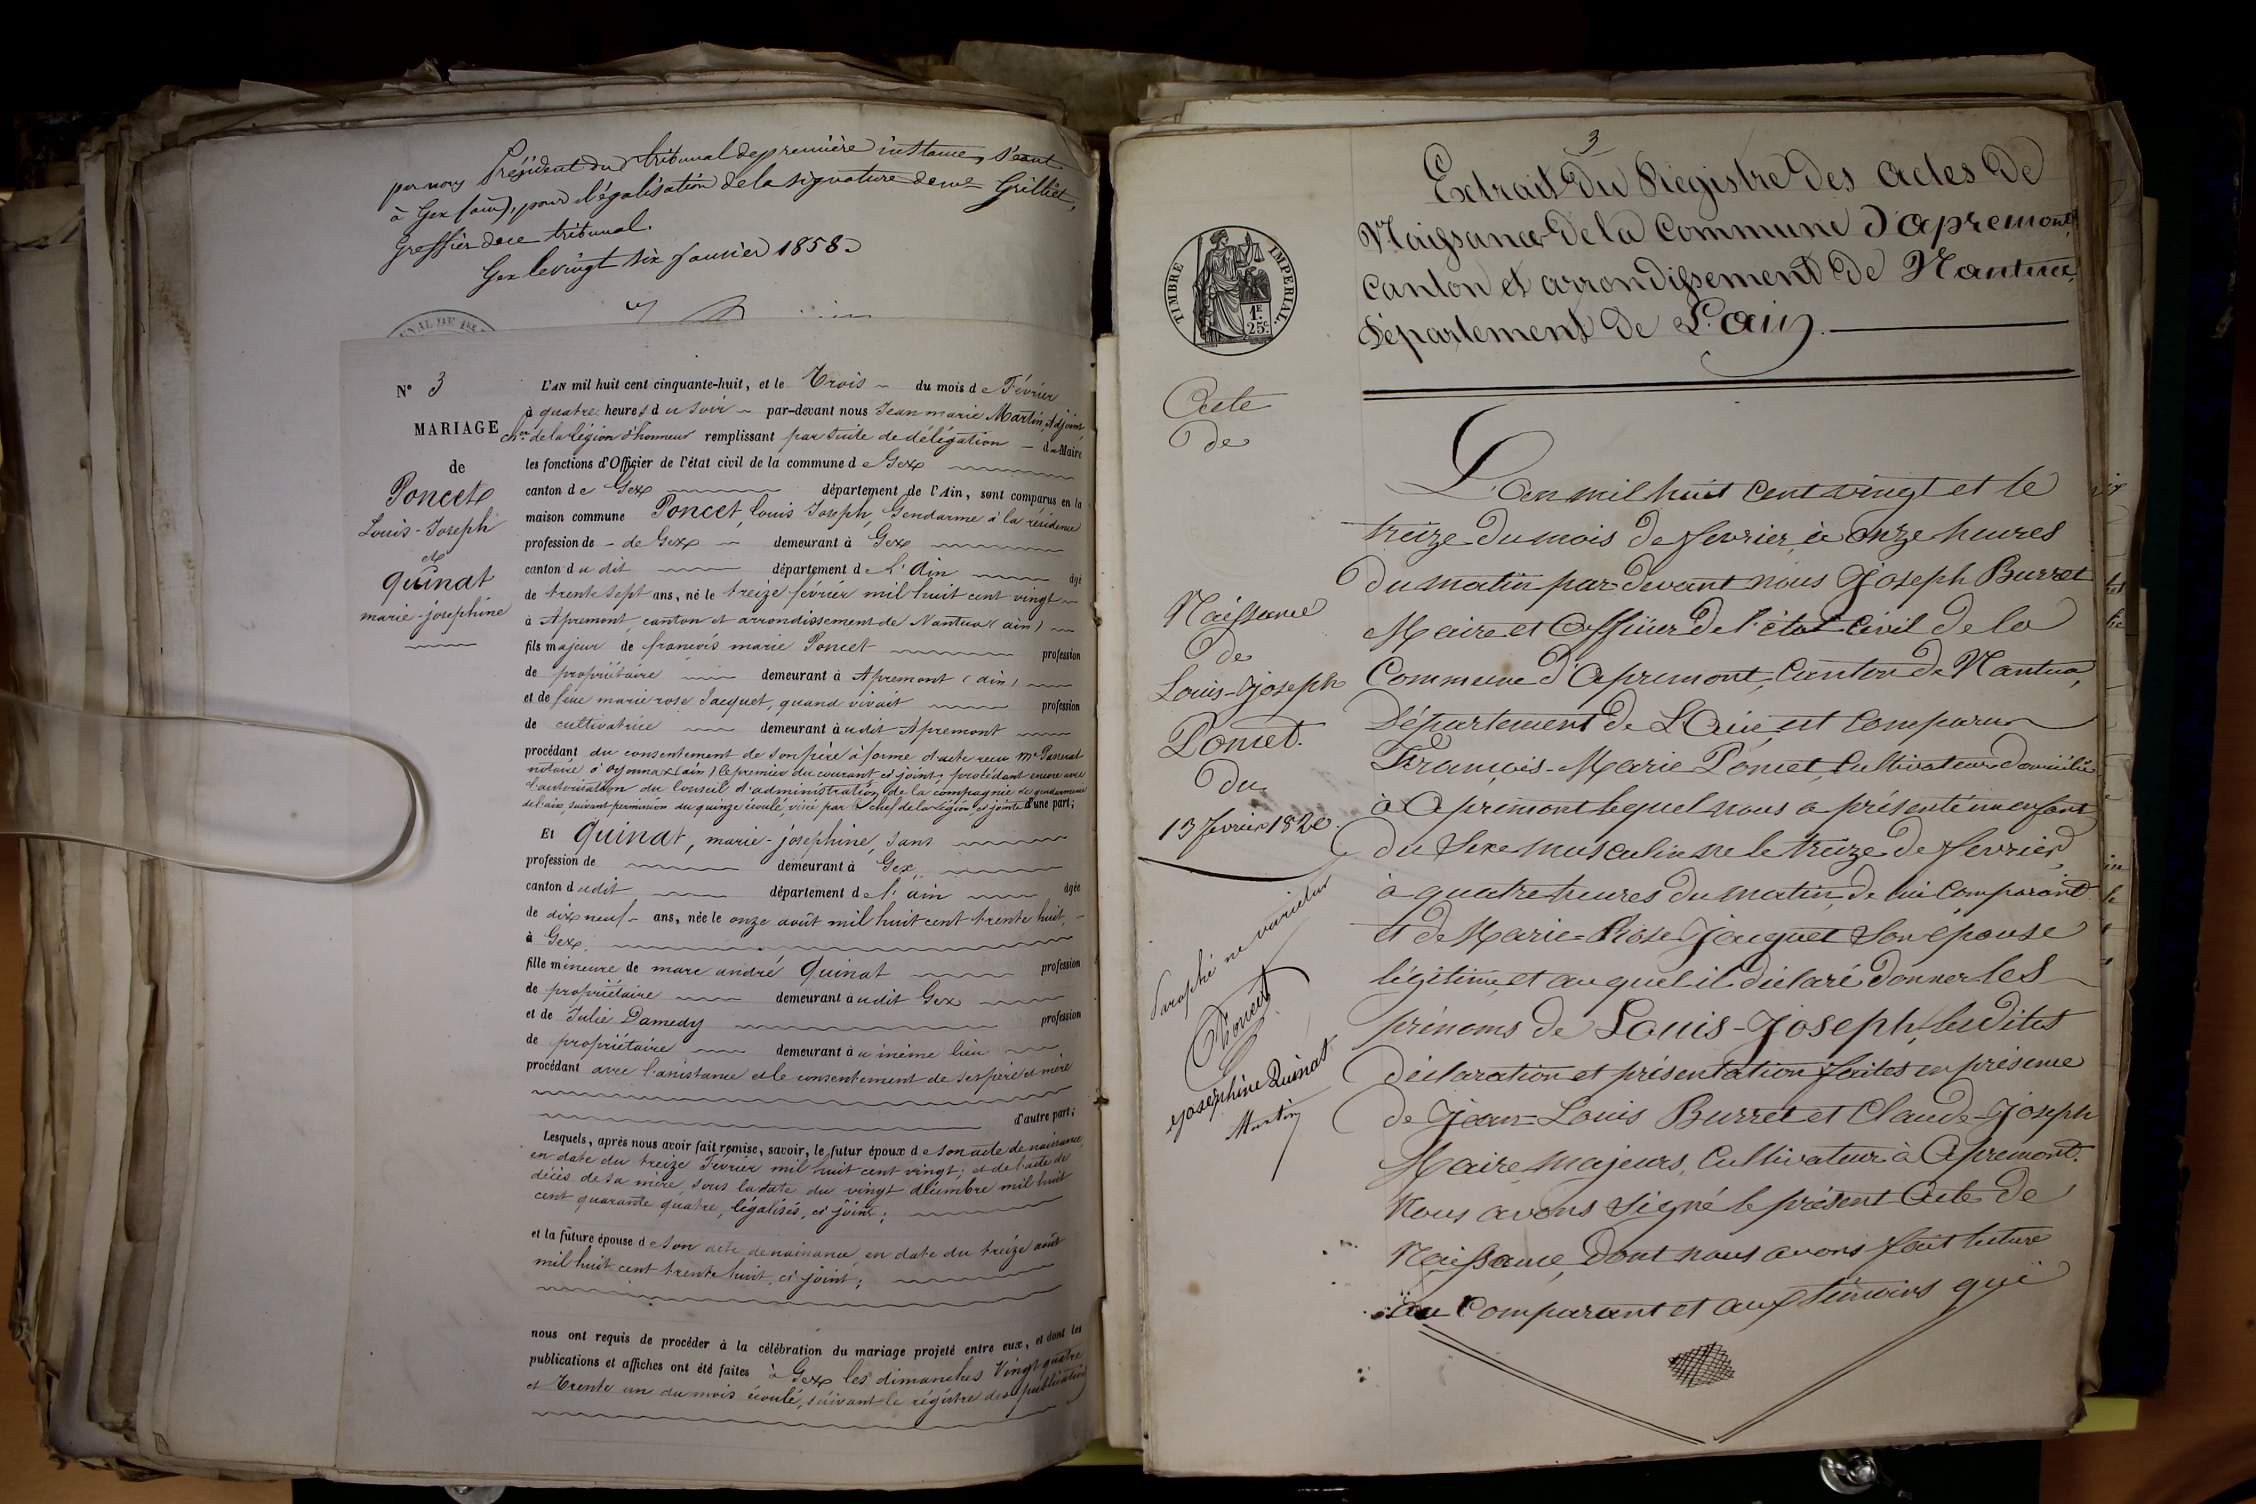 par nous Président du tribunal de première instance, séant
à Gex (ain), pour légalisation de la signature de me Grilliet,
Greffier de ce tribunal.
Gex le vingt six janvier 1858.
N° 3
MARIAGE
de
Poncet
Louis-Joseph
et
Quinat
marie-josephine
L'AN mil huit cent cinquante-huit, et le Trois du mois de Février
à quatre heures du soir par-devant nous Jean marie Martin, Adjoint,
cher de la légion d'honneur remplissant par suite de délégation du Maire
les fonctions d'Officier de l'état civil de la commune de Gex
canton de Gex département de l'Ain, sont comparus en la
maison commune Poncet, Louis Joseph, Gendarme à la résidence
profession de de Gex demeurant à Gex
canton dudit département de l'Ain âgé
de trente sept ans, né le treize février mil huit cent vingt
à Apremont, canton et arrondissement de Nantua (ain)
fils majeur de francois marie Poncet profession
de propriétaire demeurant à Apremont (ain)
et de feue marie rose Jacquet, quand vivait profession
de cultivatrice demeurant àudit Apremont
procédant du consentement de son père à forme d'acte recu Me
notaire à oyonnax (ain) le premier du courant, ci joint; procédant encore avec
l'autorisation du Conseil d'administration de la compagnie de gendarmerie
de l'ain, suivant permission du quinze écoulé, visé par le chef de la légion, ci jointe d'une part;
Et Quinat, marie-josephine, sans
profession de demeurant à Gex,
canton dudit département de l'ain âgée
de dix neuf ans, née le onze août mil huit cent trente huit,
à Gex,
fille mineure de marc andré Quinat profession
de propriétaire demeurant àudit Gex
et de Julie Damedy profession
de propriétaire demeurant àu même lieu
procédant avec l'assistance et le consentement de ses père et mère
d'autre part;
Lesquels, après nous avoir fait remise, savoir, le futur époux de son acte de naissance,
en date du treize Février mil huit cent vingt; et de l'acte de
décès de sa mère, sous la date du vingt décembre mil huit
cent quarante quatre, légalisés, ci joint;
et la future épouse de son acte de naissance, en date du treize août
mil huit cent trente huit, ci joint;
nous ont requis de procéder à la célébration du mariage projeté entre eux, et dont les
publications et affiches ont été faites à Gex les dimanches Vingt quatre
et Trente un du mois écoulé, suivant le régistre des publications
3
Extrait du Régistre des actes de
Naissance de la Commune d'apremont,
Canton et arrondissement de Nantua,
Département de L'ain.
TIMBRE IMPÉRIAL.
1F.
25c.
Acte
de
Naissance
de
Louis-Joseph
Poncet.
du
13 fevrier 1820.
Paraphé ne varietur
Poncet
Joséphine Quinat
Martin
L'an mil huit cent vingt et le
treize du mois de fevrier à onze heures
du matin par devant nous Joseph Burret
Maire et Officier de l'état Civil de la
Commune d'apremont, Canton de Nantua,
Département de L'Ain, est comparu
François-Marie Poncet, Cultivateur domicilié
à Apremont lequel nous a présenté un enfant
du Sexe masculin né le treize de fevrier,
à quatre heures du matin, de lui Comparant
et de Marie-Rose Jacquet son épouse
légitime, et auquel il déclaré donner les
prénoms de Louis-Joseph, les dites
déclaration et présentation faites en présence
de Jean-Louis Burret et Claude-Joseph
Maire, majeurs, Cultivateur à Apremont.
Nous avons signé le présent Acte de
Naissance, dont nous avons fait lecture
au Comparant et aux témoins qui